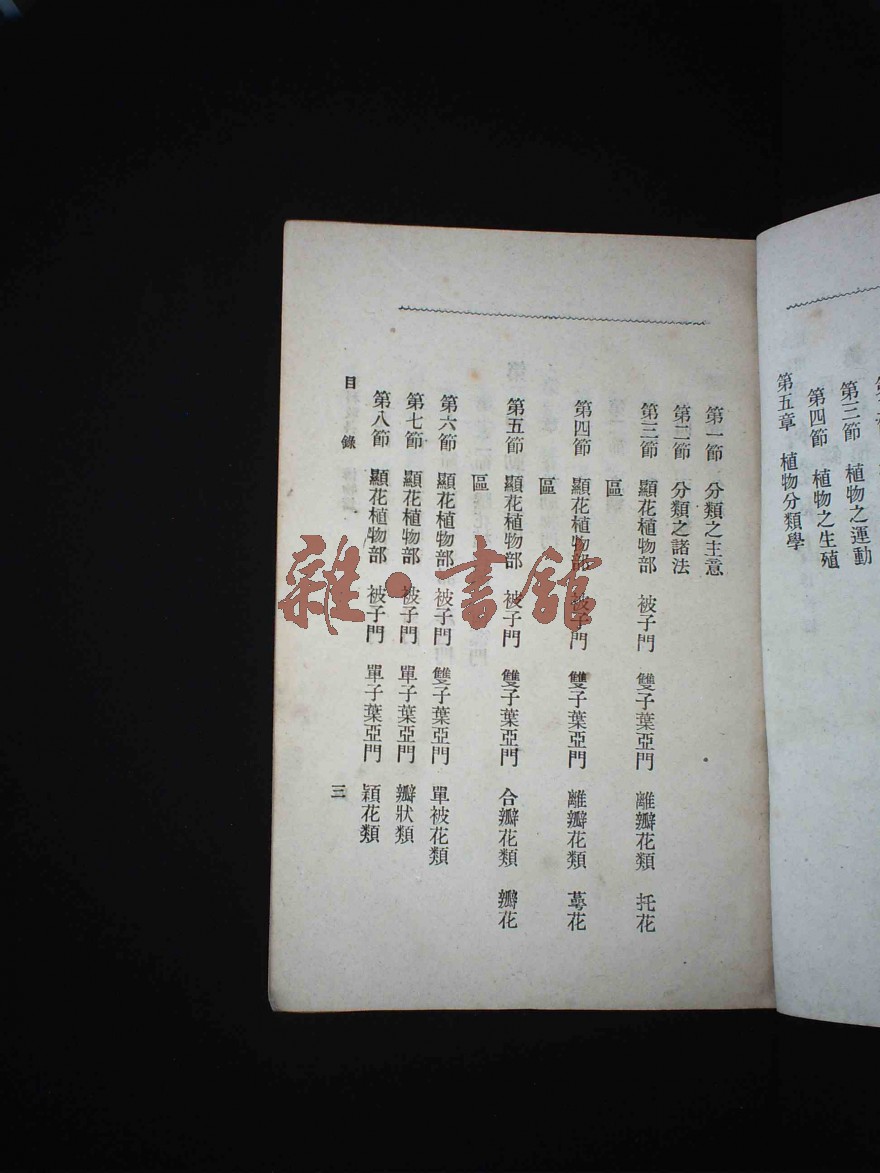 第三節 植物之運動
第四節 植物之生殖
第五章 植物分類學
第一節 分類之主意
第二節 分類之諸法
第三節 顯花植物部 被子門 雙子葉亞門 離瓣花類 托花
區
第四節 顯花植物部 被子門 雙子葉亞門 離瓣花類 萼花
區
第五節 顯花植物部 被子門 雙子葉亞門 合瓣花類 瓣花
區
第六節 顯花植物部 被子門 雙子葉亞門 單被花類
第七節 顯花植物部 被子門 單子葉亞門 瓣狀類
第八節 顯花植物部 被子門 單子葉亞門 穎花類
目錄 三
雜·書館